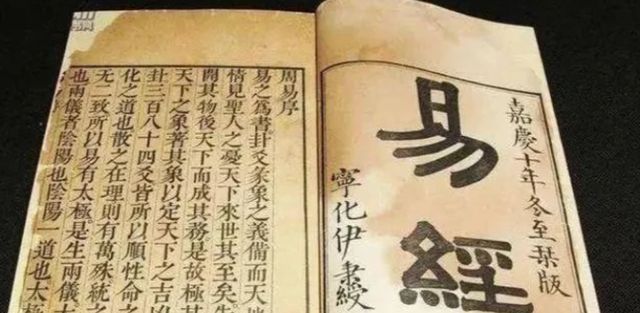 嘉慶十年冬至槧版
易經
寧化伊秉綬
周易序
易之爲書卦爻彖象之義備而天
情見聖人之憂天下來世其至矣
開其物後天下而成其務是故極其
天下之象著其象以定天下之吉凶
卦三百八十四爻皆所以順性命之
化之道也散之在理則有萬殊統之
无二致所以易有太極是生兩儀
也兩儀者陰陽也陰陽一道也太極